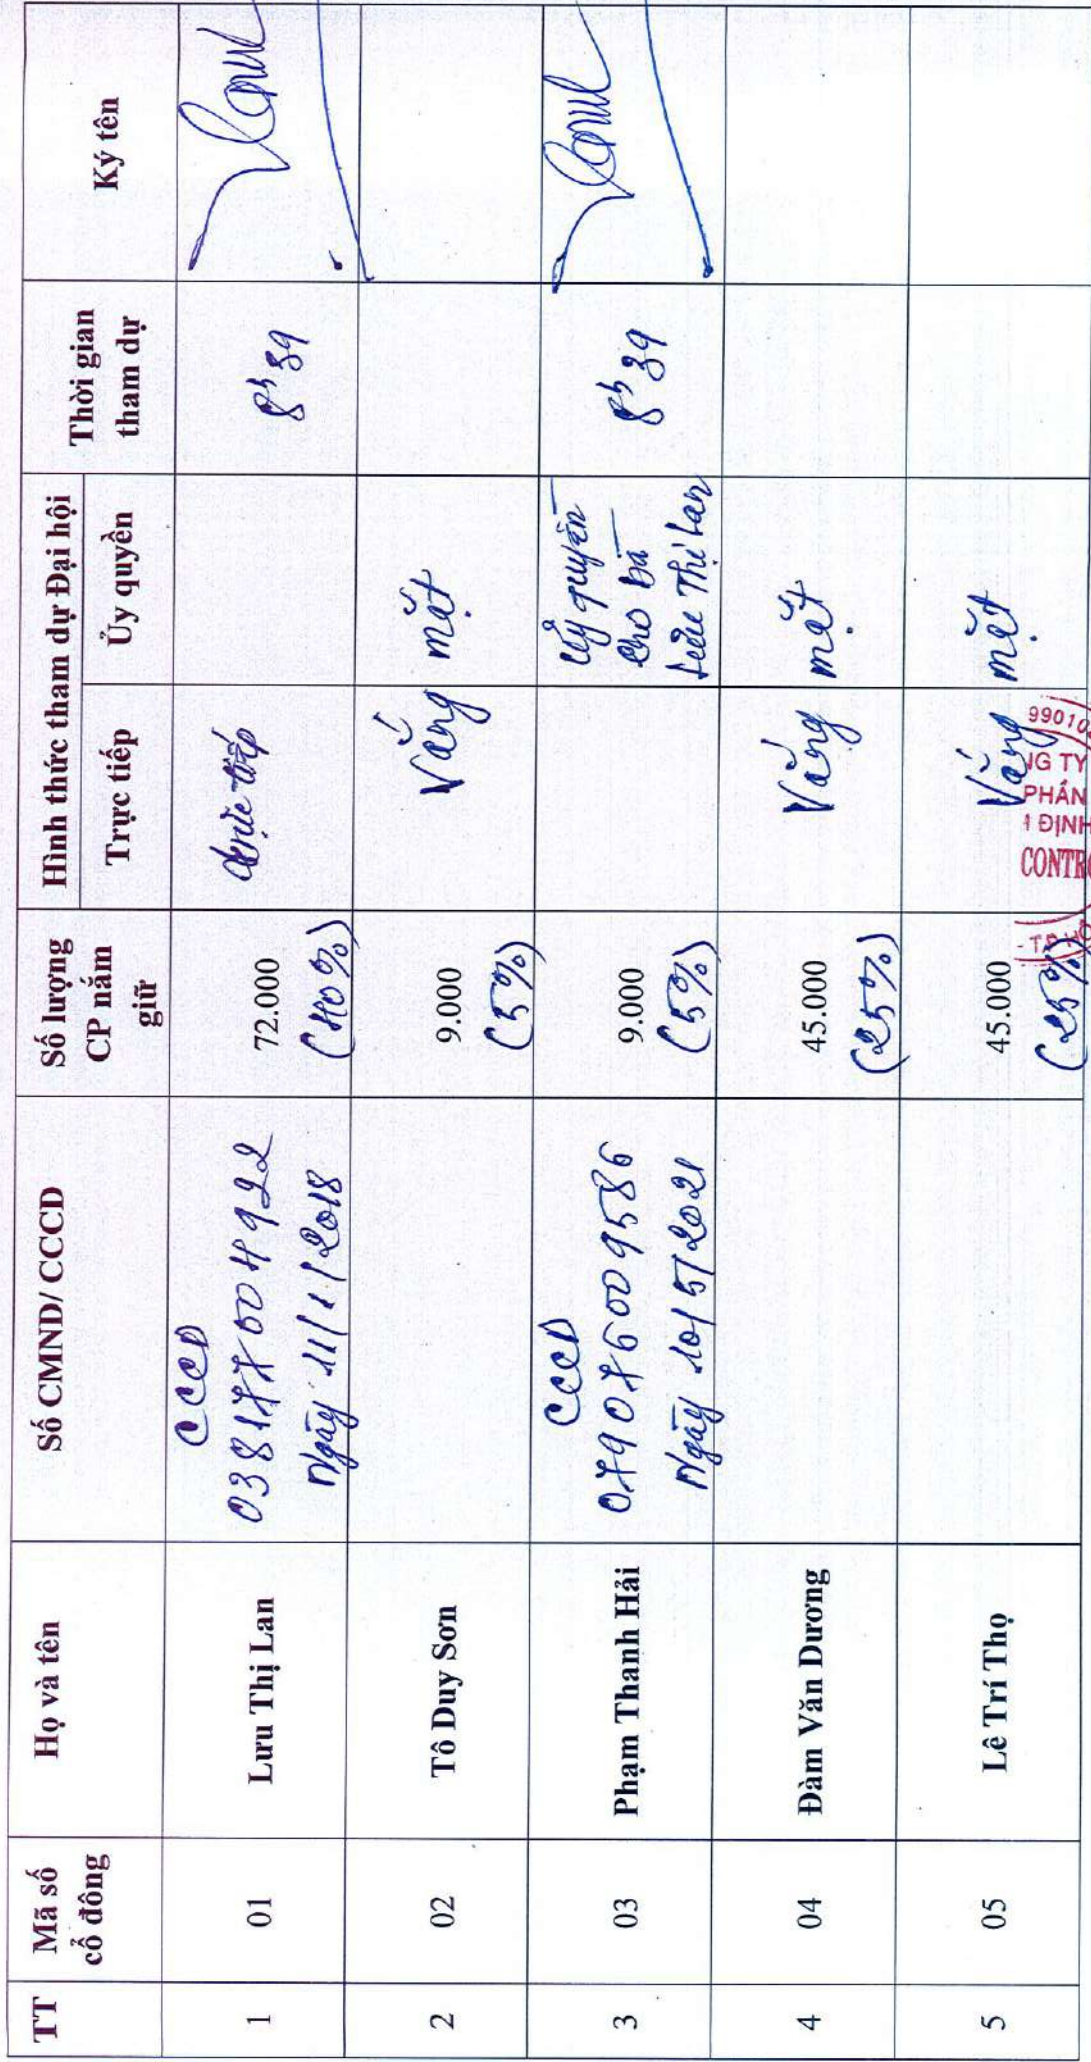 TT
Mã số
cổ đông
Họ và tên
Số CMND/ CCCD
Số lượng
CP nắm
giữ
Hình thức tham dự Đại hội
Trực tiếp
Ủy quyền
Thời gian
tham dự
Ký tên
1
01
Lưu Thị Lan
CCCD
038177004922
Ngày 11/1/2018
72.000
(40%)
trực tiếp
8h39
2
02
Tô Duy Sơn
9.000
(5%)
Vắng mặt
3
03
Phạm Thanh Hải
CCCD
079076009586
Ngày 10/5/2021
9.000
(5%)
Uỷ quyền
cho bà
Lưu Thị Lan
8h39
4
04
Đàm Văn Dương
45.000
(25%)
Vắng mặt
5
05
Lê Trí Thọ
45.000
(25%)
Vắng mặt
99010
NG TY
PHẦN
ĐỊNH
CONTR